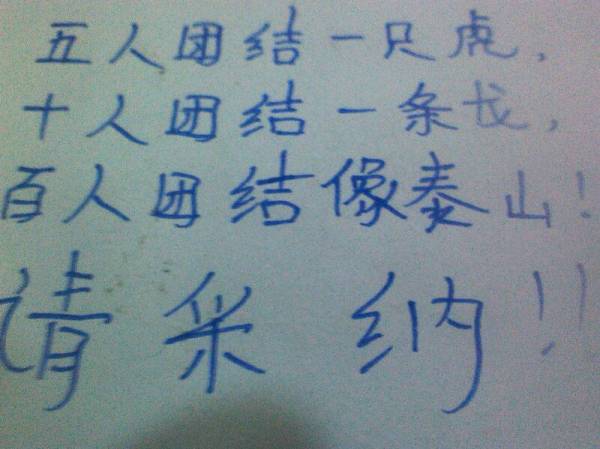 五人团结一只虎,
十人团结一条戈,
百人团结像泰山!
请采纳!!